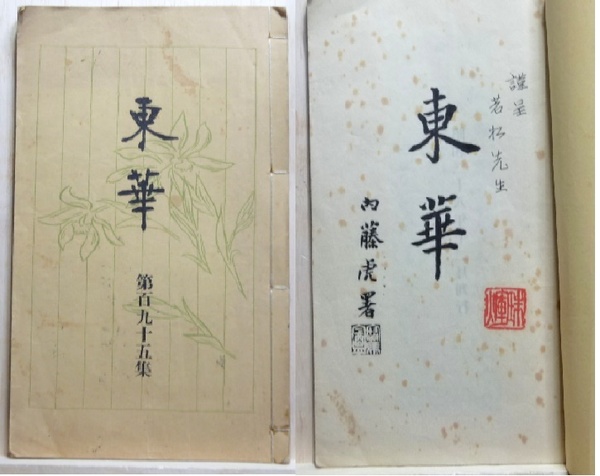 東華
第百九十五集
謹呈
若松先生
東華
内藤虎署